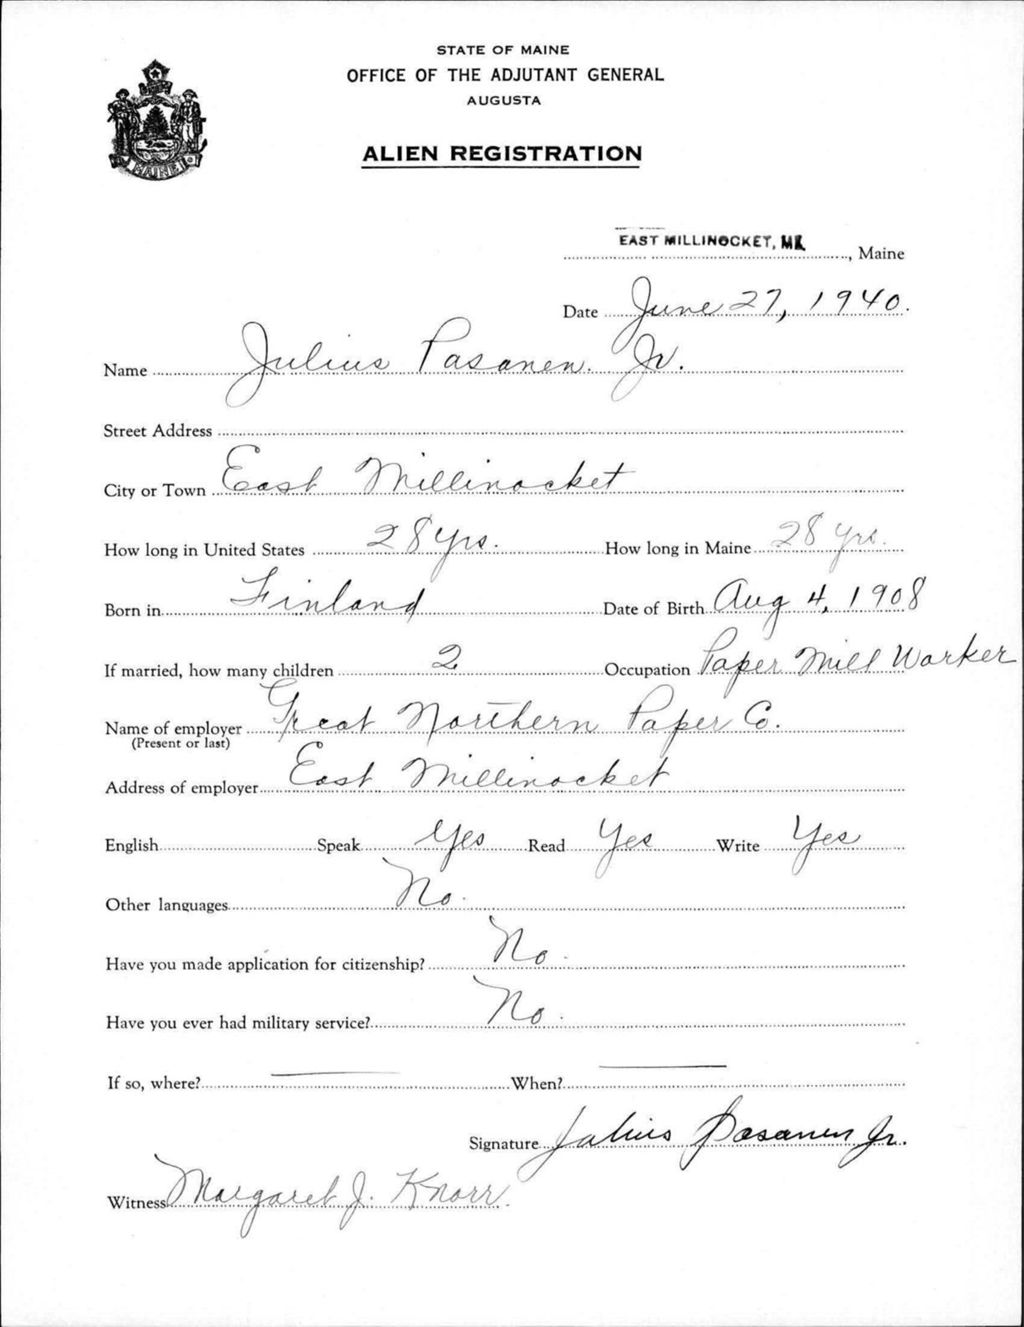 STATE OF MAINE
OFFICE OF THE ADJUTANT GENERAL
AUGUSTA
ALIEN REGISTRATION
MAINE
EAST MILLINOCKET, ME, Maine
Date June 27, 1940.
Name Julius Pasanen. Jr.
Street Address
City or Town East Millinocket
How long in United States 28 yrs. How long in Maine 28 yrs.
Born in Finland Date of Birth Aug 4, 1908
If married, how many children 2 Occupation Paper Mill Worker
Name of employer Great Northern Paper Co.
(Present or last)
Address of employer East Millinocket
English Speak Yes Read Yes Write Yes
Other languages No.
Have you made application for citizenship? No.
Have you ever had military service? No.
If so, where? When?
Signature Julius Pasanen Jr.
Witness Margaret J. Knorr.